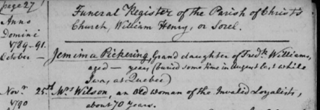 page 27
Funeral Register of the Parish of Christ's
Anno
Church, William Henry, or Sorel.
Domini
1789-91.
October — Jemima Pickering, Grand daughter of Fredk. Williams,
aged — years, (buried some time in August last while
I was, at Quebec)
Novr. 25th Mrs. Wilson, an old woman of the Invalid Loyalists,
1790 about 70 years.